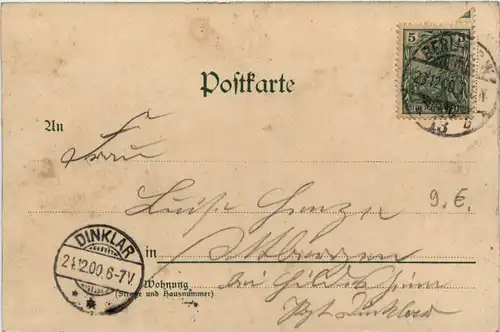 5 5
BERLIN
23.12.00
Postkarte
An
Frau
Luise
9.E.
DINKLAR
24.12.00.6-7V.
in Ottbergen
Wohnung
(Straße und Hausnummer)
bei Hildesheim
Pst. Dinklar